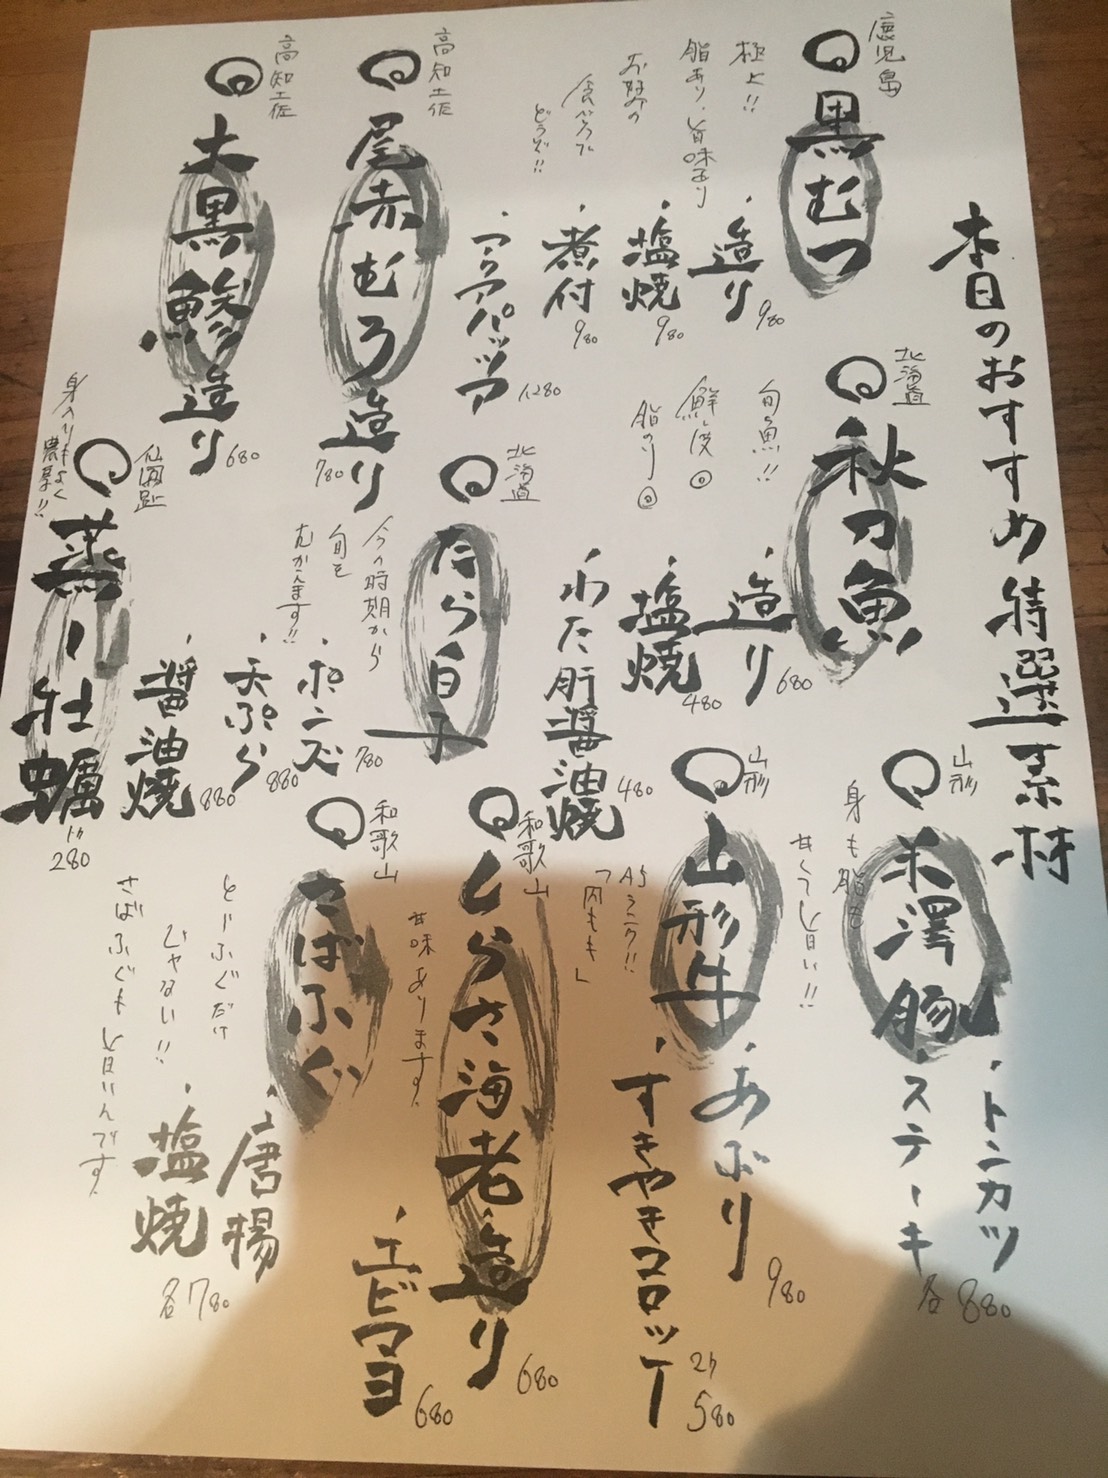 本日のおすすめ特選素材
鹿児島
黒むつ
極上!!
脂あり、旨味あり
お好みの
食べ方で
どうぞ!!
・造り 980
・塩焼 980
・煮付 980
・アクアパッツア 1280
高知土佐
尾赤むろ造り
780
高知土佐
大黒鯵造り
680
北海道
秋刀魚
旬の魚!!
鮮度◎
脂のり◎
・造り 680
・塩焼 480
・わた肝醤油焼 480
北海道
たら白子
今の時期から
旬を
むかえます!!
・ポン酢 780
・天ぷら 880
・醤油焼 880
仙鳳趾
身入りもよく
濃厚!!
蒸し牡蠣
1ヶ 280
山形
米澤豚
身も脂も
甘くて旨い!!
・トンカツ
・ステーキ
各880
山形
山形牛
A5ランク!!
「内もも」
・あぶり 980
・すきやきコロッケ
2ケ 580
和歌山
しらさ海老
甘味あります。
・造り 680
・エビマヨ 680
和歌山
さばふぐ
とらふぐだけ
じゃない!!
さばふぐも旨いんです。
・唐揚
・塩焼
各780